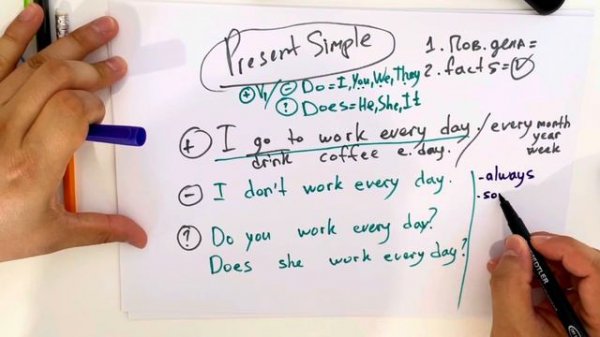 Present Simple
1. Пов. дела =
2. facts = ✓
⊕ V₁/⊖ Do = I, You, We, They
? Does = He, She, It
+ I go to work every day. / every month
year
week
drink coffee e. day.
− I don't work every day.
- always
- so
? Do you work every day?
Does she work every day?
STAEDTLER